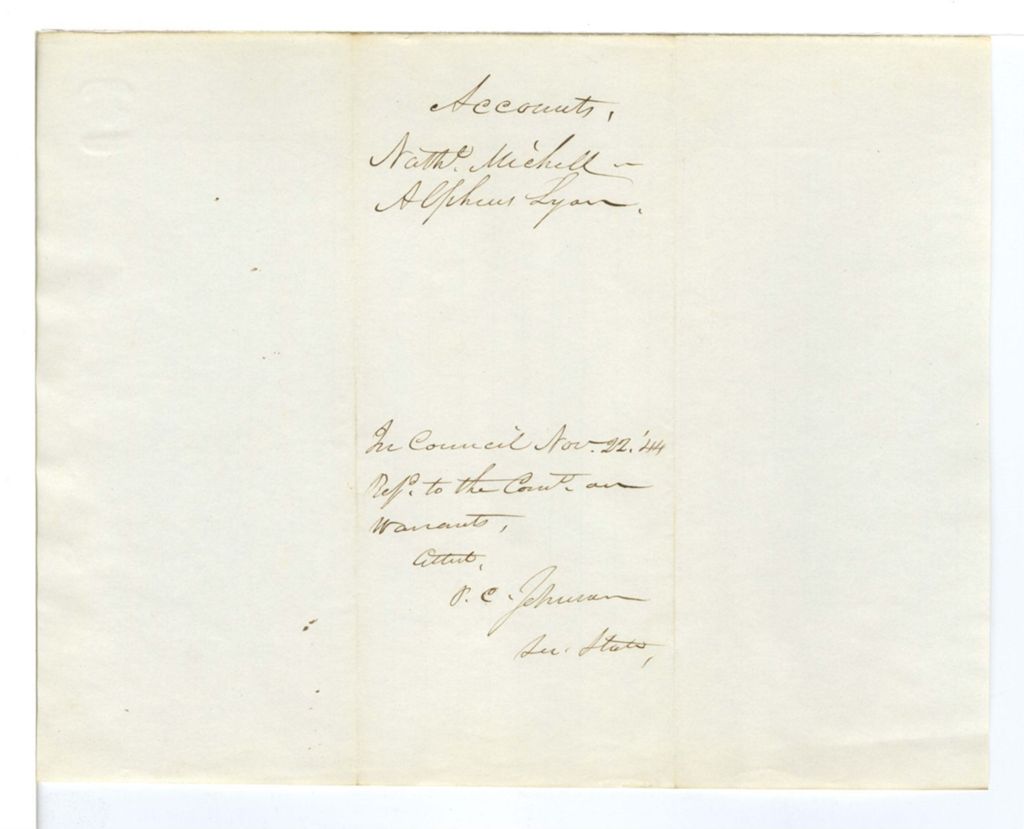 Accounts,
Nathl. Michell –
Alpheus Lyon.
In Council Nov. 22. '44
Refd. to the Comt. on
Warrants,
Attest,
P. C. Johnson
Sec. State,